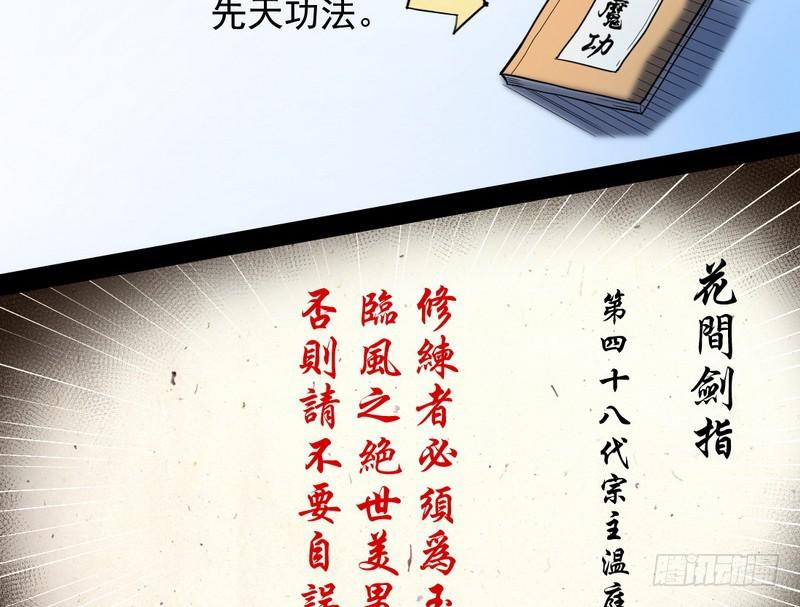 先天功法。
魔功
花間劍指
第四十八代宗主溫庭
修練者必須爲玉
臨風之絕世美男
否則請不要自誤
腾讯动漫